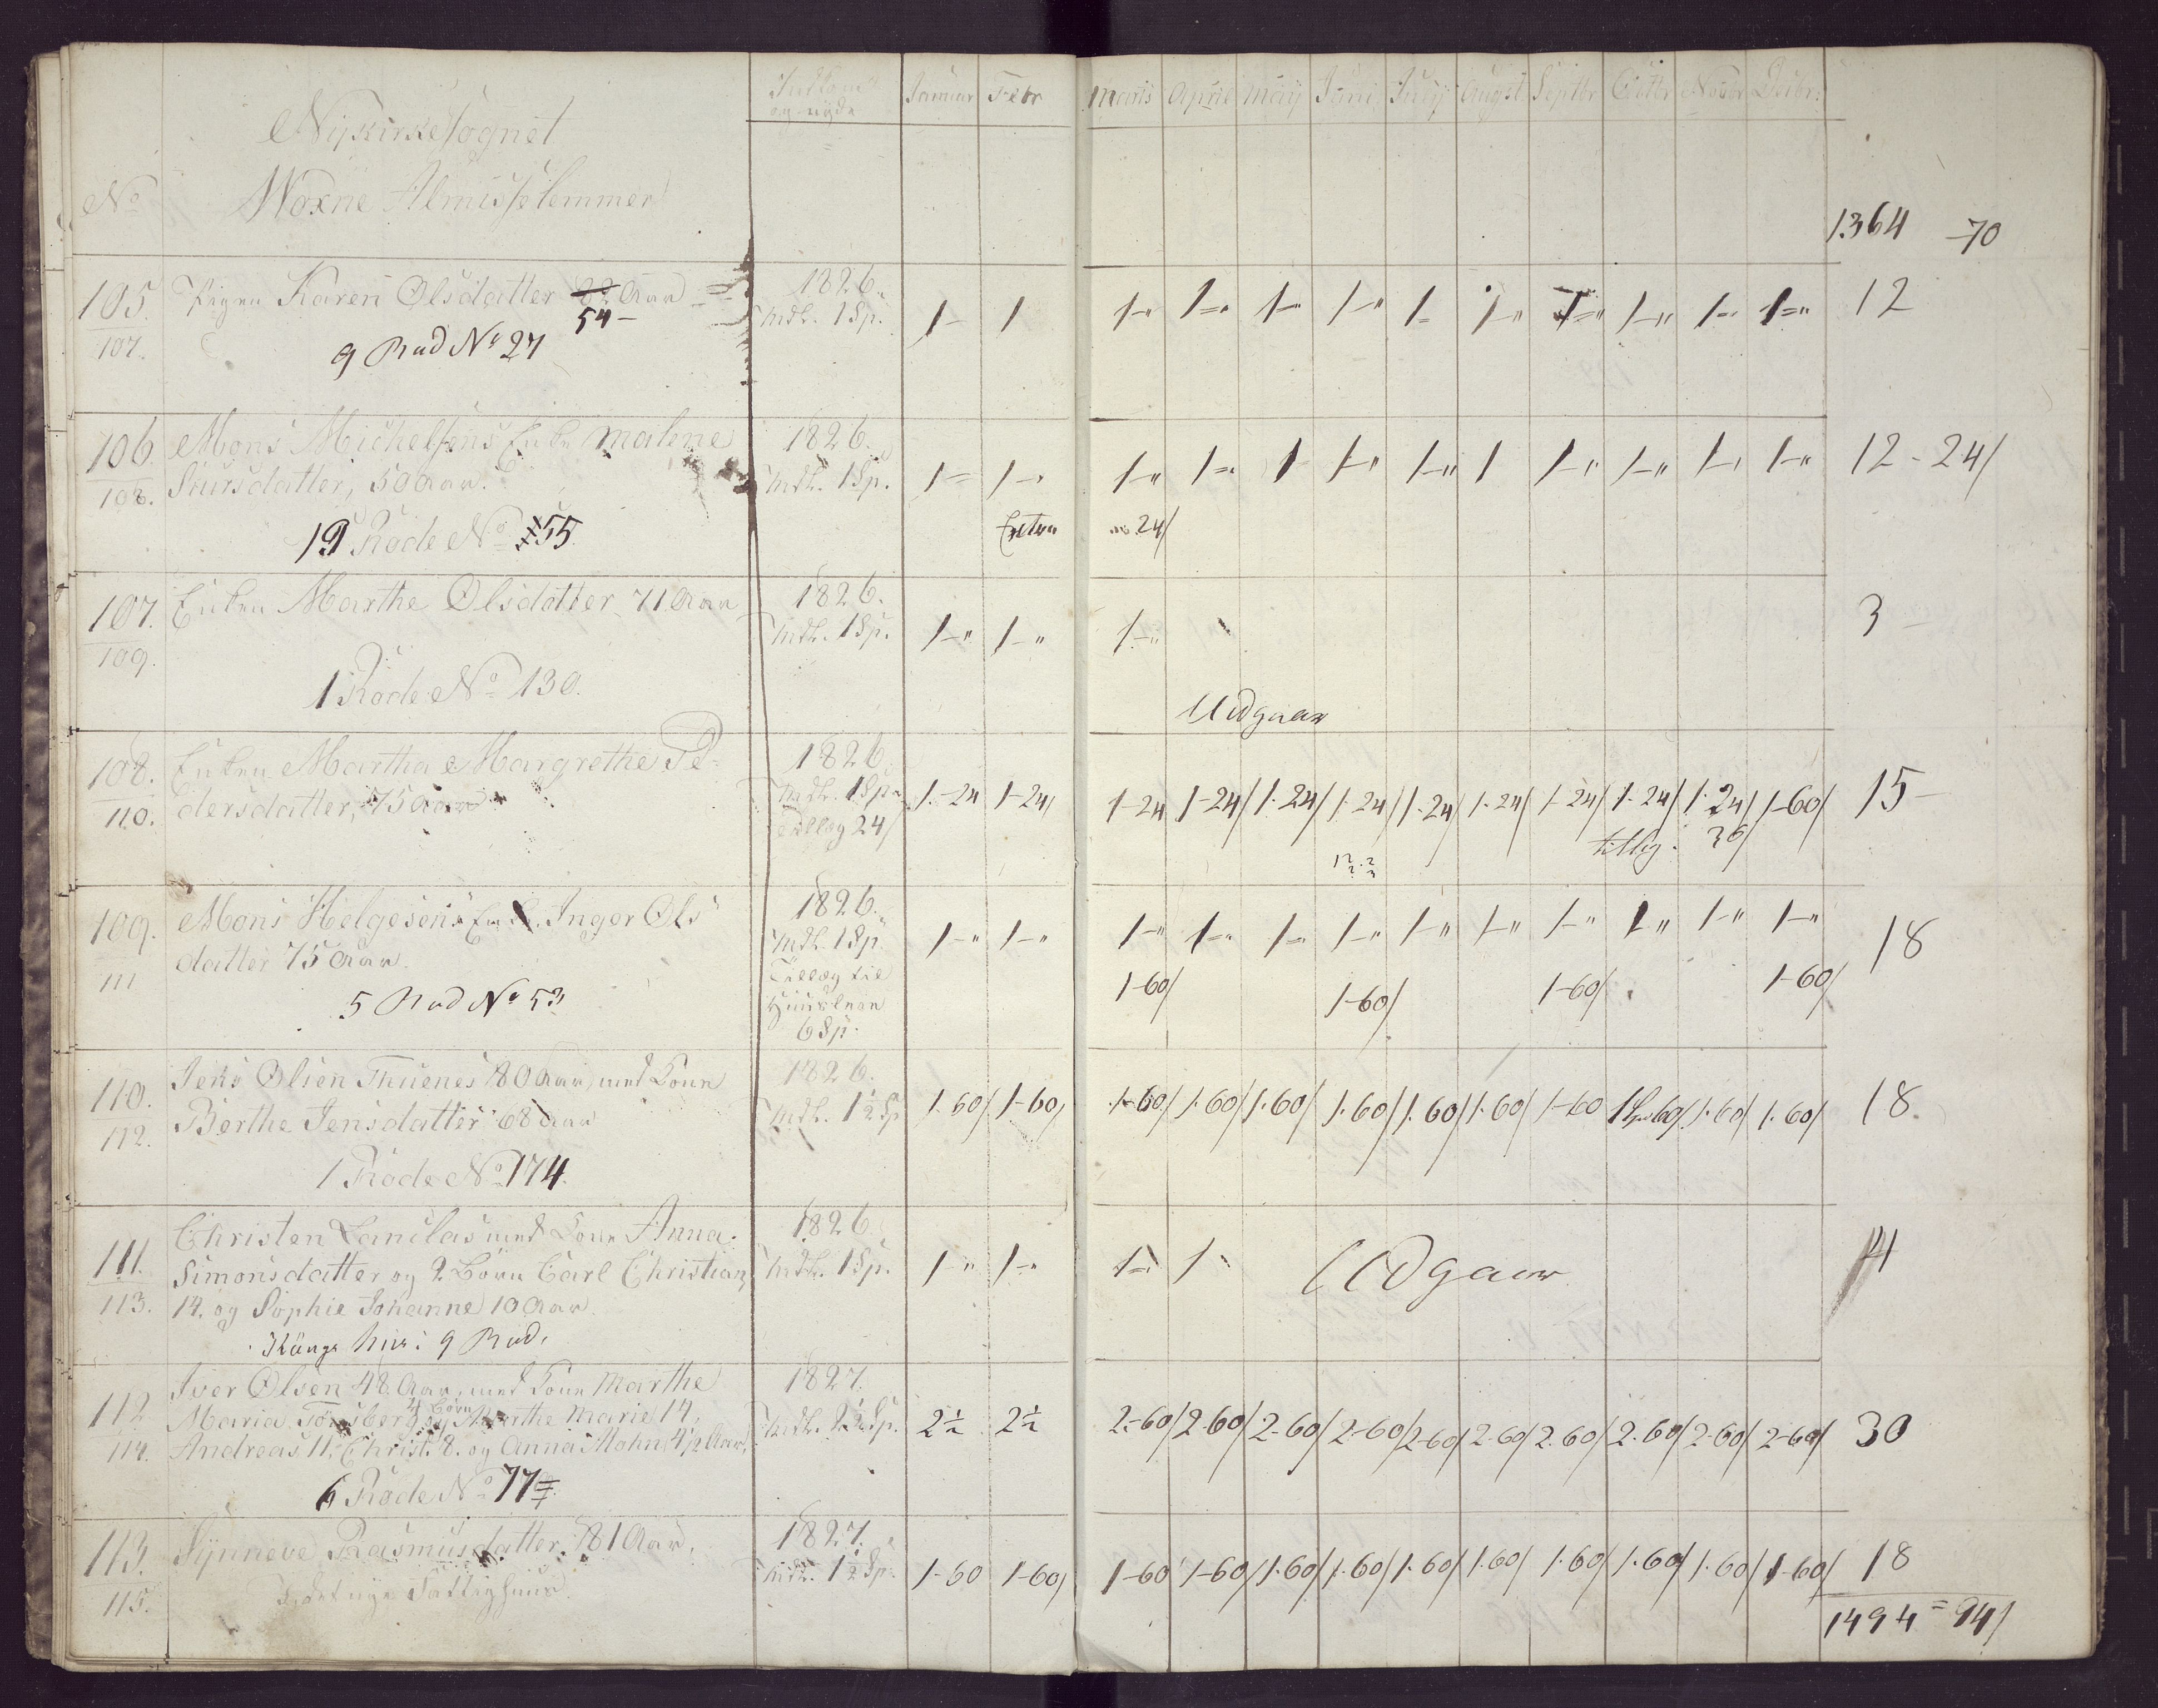 Nÿkirkesognet
No Woxne Almisselemmer
Indkom og nyde Januar Febr Marts April Maÿ Juni Julÿ Augst Septbr Octbr Novbr Decbr:
1364 - 70
105. Pigen Karen Olsdatter 82 Aar 1826. 1- 1 1-" 1-" 1-" 1-" 1- 1-" 1-" 1-" 1-" 1-" 12
54- Mdl. 1 Sp.
107. 9 Rod No 27
106 Mons Michelsens Enke Malene 1826. 1- 1-" 1-" 1-" 1 1-" 1-" 1 1-" 1-" 1-" 1-" 12 - 24/
108. Siursdatter, 50 Aar. Mdl. 1 Sp.
19 Rode No 55 Extra 24/
107. Enken Marthe Olsdatter 71 Aar 1826. 1-" 1-" 1-" 3 -
109. Mdl. 1 Sp.
1 Rode No 130. Udgaar
108. Enken Martha Margrethe Pe- 1826 1-24 1-24/ 1-24 1-24/ 1-24/ 1-24/ 1-24/ 1-24/ 1-24/ 1-24/ 1-24/ 1-60/ 15 -
110. dersdatter, 75 Aar Mdl. 1 Sp. tillæg 24/ tillæg. 36/
109. Mons Helgesens Enke Inger Ols 1826. 1-" 1-" 1-" 1-" 1-" 1-" 1-" 1-" 1-" 1" 1-" 1-" 18
111 datter 75 Aar. Mdl. 1 Sp. 1-60/ 1-60/ 1-60/ 1-60/
5 Rod No 53 Tillæg til Huusleie 6 Sp.
110. Jens Olsen Thuenes 80 Aar, med Kone 1826. 1-60/ 1-60/ 1-60/ 1-60/ 1-60/ 1-60/ 1-60/ 1-60/ 1-60 1 Sp 60/ 1-60/ 1-60/ 18.
112. Berthe Jensdatter 68 Aar Mdl. 1½ Sp
1 Rode No 174.
Christen Lanclas med Kone Anna 1826. 1-" 1-" 1-" 1-" Udgaar 4
111. Simonsdatter og 2 Børn Carl Christian Mdl. 1 Sp.
113. 14. og Sophie Johanne 10 Aar.
9 Rod.
Iver Olsen 48 Aar, med Kone Marthe 1827. 2½ 2½ 2-60/ 2-60/ 2-60/ 2-60/ 2-60/ 2-60/ 2-60/ 2-60/ 2-60/ 2-60/ 30
112 Maria Tønsberg 4 Børn Marthe Marie 14, Mdl. 2½ Sp.
114. Andreas 11, Christ. 8. og Anna Mohn 4½ Aar.
6 Rode No 77
113. Sÿnneve Rasmusdatter 81 Aar. 1827. 1-60 1-60/ 1-60 1-60/ 1-60/ 1-60/ 1-60/ 1-60/ 1-60/ 1-60/ 1-60/ 1-60/ 18
115. I det nye Fattighuus. Mdl. 1½ Sp.
1494 = 94/